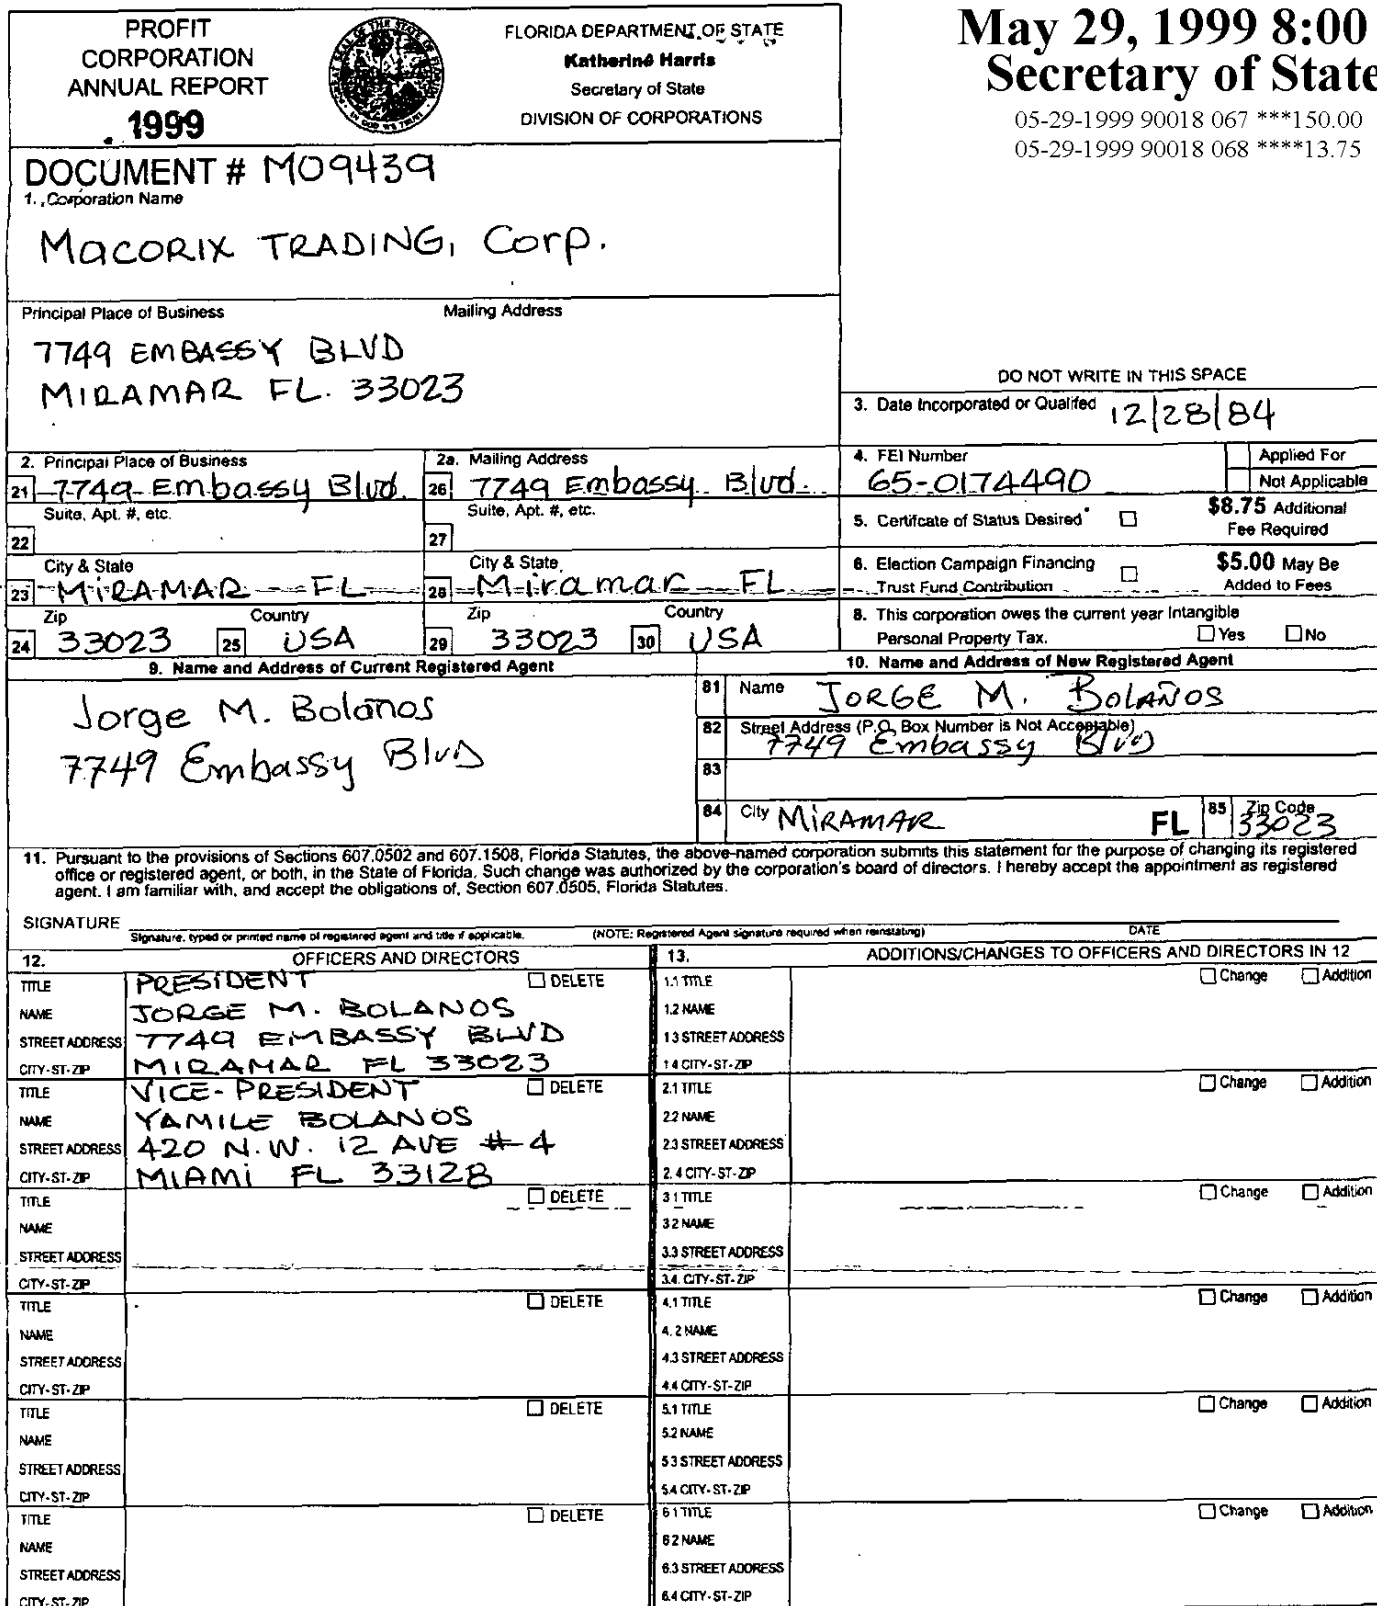 PROFIT
CORPORATION
ANNUAL REPORT
1999
FLORIDA DEPARTMENT OF STATE
Katherine Harris
Secretary of State
DIVISION OF CORPORATIONS
May 29, 1999 8:00
Secretary of State
05-29-1999 90018 067 ***150.00
05-29-1999 90018 068 ****13.75
DOCUMENT # M09439
1. Corporation Name
MACORIX TRADING, Corp.
Principal Place of Business Mailing Address
7749 EMBASSY BLVD
MIRAMAR FL. 33023
DO NOT WRITE IN THIS SPACE
3. Date Incorporated or Qualifed 12/28/84
2. Principal Place of Business
21 7749 Embassy Blvd.
Suite, Apt. #, etc.
22
City & State
23 MIRAMAR FL
Zip Country
24 33023 25 USA
2a. Mailing Address
26 7749 Embassy Blvd.
Suite, Apt. #, etc.
27
City & State
28 Miramar FL
Zip Country
29 33023 30 USA
4. FEI Number
65-0174490
Applied For
Not Applicable
5. Certifcate of Status Desired
$8.75 Additional
Fee Required
6. Election Campaign Financing
Trust Fund Contribution
$5.00 May Be
Added to Fees
8. This corporation owes the current year Intangible
Personal Property Tax. Yes No
9. Name and Address of Current Registered Agent
Jorge M. Bolanos
7749 Embassy Blvd
10. Name and Address of New Registered Agent
81 Name JORGE M. BOLAÑOS
82 Street Address (P.O. Box Number is Not Acceptable)
7749 Embassy Blvd
83
84 City MIRAMAR FL 85 Zip Code
33023
11. Pursuant to the provisions of Sections 607.0502 and 607.1508, Florida Statutes, the above-named corporation submits this statement for the purpose of changing its registered
office or registered agent, or both, in the State of Florida. Such change was authorized by the corporation's board of directors. I hereby accept the appointment as registered
agent. I am familiar with, and accept the obligations of, Section 607.0505, Florida Statutes.
SIGNATURE
Signature, typed or printed name of registered agent and title if applicable. (NOTE: Registered Agent signature required when reinstating) DATE
12. OFFICERS AND DIRECTORS
13. ADDITIONS/CHANGES TO OFFICERS AND DIRECTORS IN 12
TITLE PRESIDENT DELETE
NAME JORGE M. BOLANOS
STREET ADDRESS 7749 EMBASSY BLVD
CITY-ST-ZIP MIRAMAR FL 33023
1.1 TITLE Change Addition
1.2 NAME
1.3 STREET ADDRESS
1.4 CITY-ST-ZIP
TITLE VICE-PRESIDENT DELETE
NAME YAMILE BOLANOS
STREET ADDRESS 420 N.W. 12 AVE #4
CITY-ST-ZIP MIAMI FL 33128
2.1 TITLE Change Addition
2.2 NAME
2.3 STREET ADDRESS
2.4 CITY-ST-ZIP
TITLE DELETE
NAME
STREET ADDRESS
CITY-ST-ZIP
3.1 TITLE Change Addition
3.2 NAME
3.3 STREET ADDRESS
3.4. CITY-ST-ZIP
TITLE DELETE
NAME
STREET ADDRESS
CITY-ST-ZIP
4.1 TITLE Change Addition
4.2 NAME
4.3 STREET ADDRESS
4.4 CITY-ST-ZIP
TITLE DELETE
NAME
STREET ADDRESS
CITY-ST-ZIP
5.1 TITLE Change Addition
5.2 NAME
5.3 STREET ADDRESS
5.4 CITY-ST-ZIP
TITLE DELETE
NAME
STREET ADDRESS
CITY-ST-ZIP
6.1 TITLE Change Addition
6.2 NAME
6.3 STREET ADDRESS
6.4 CITY-ST-ZIP